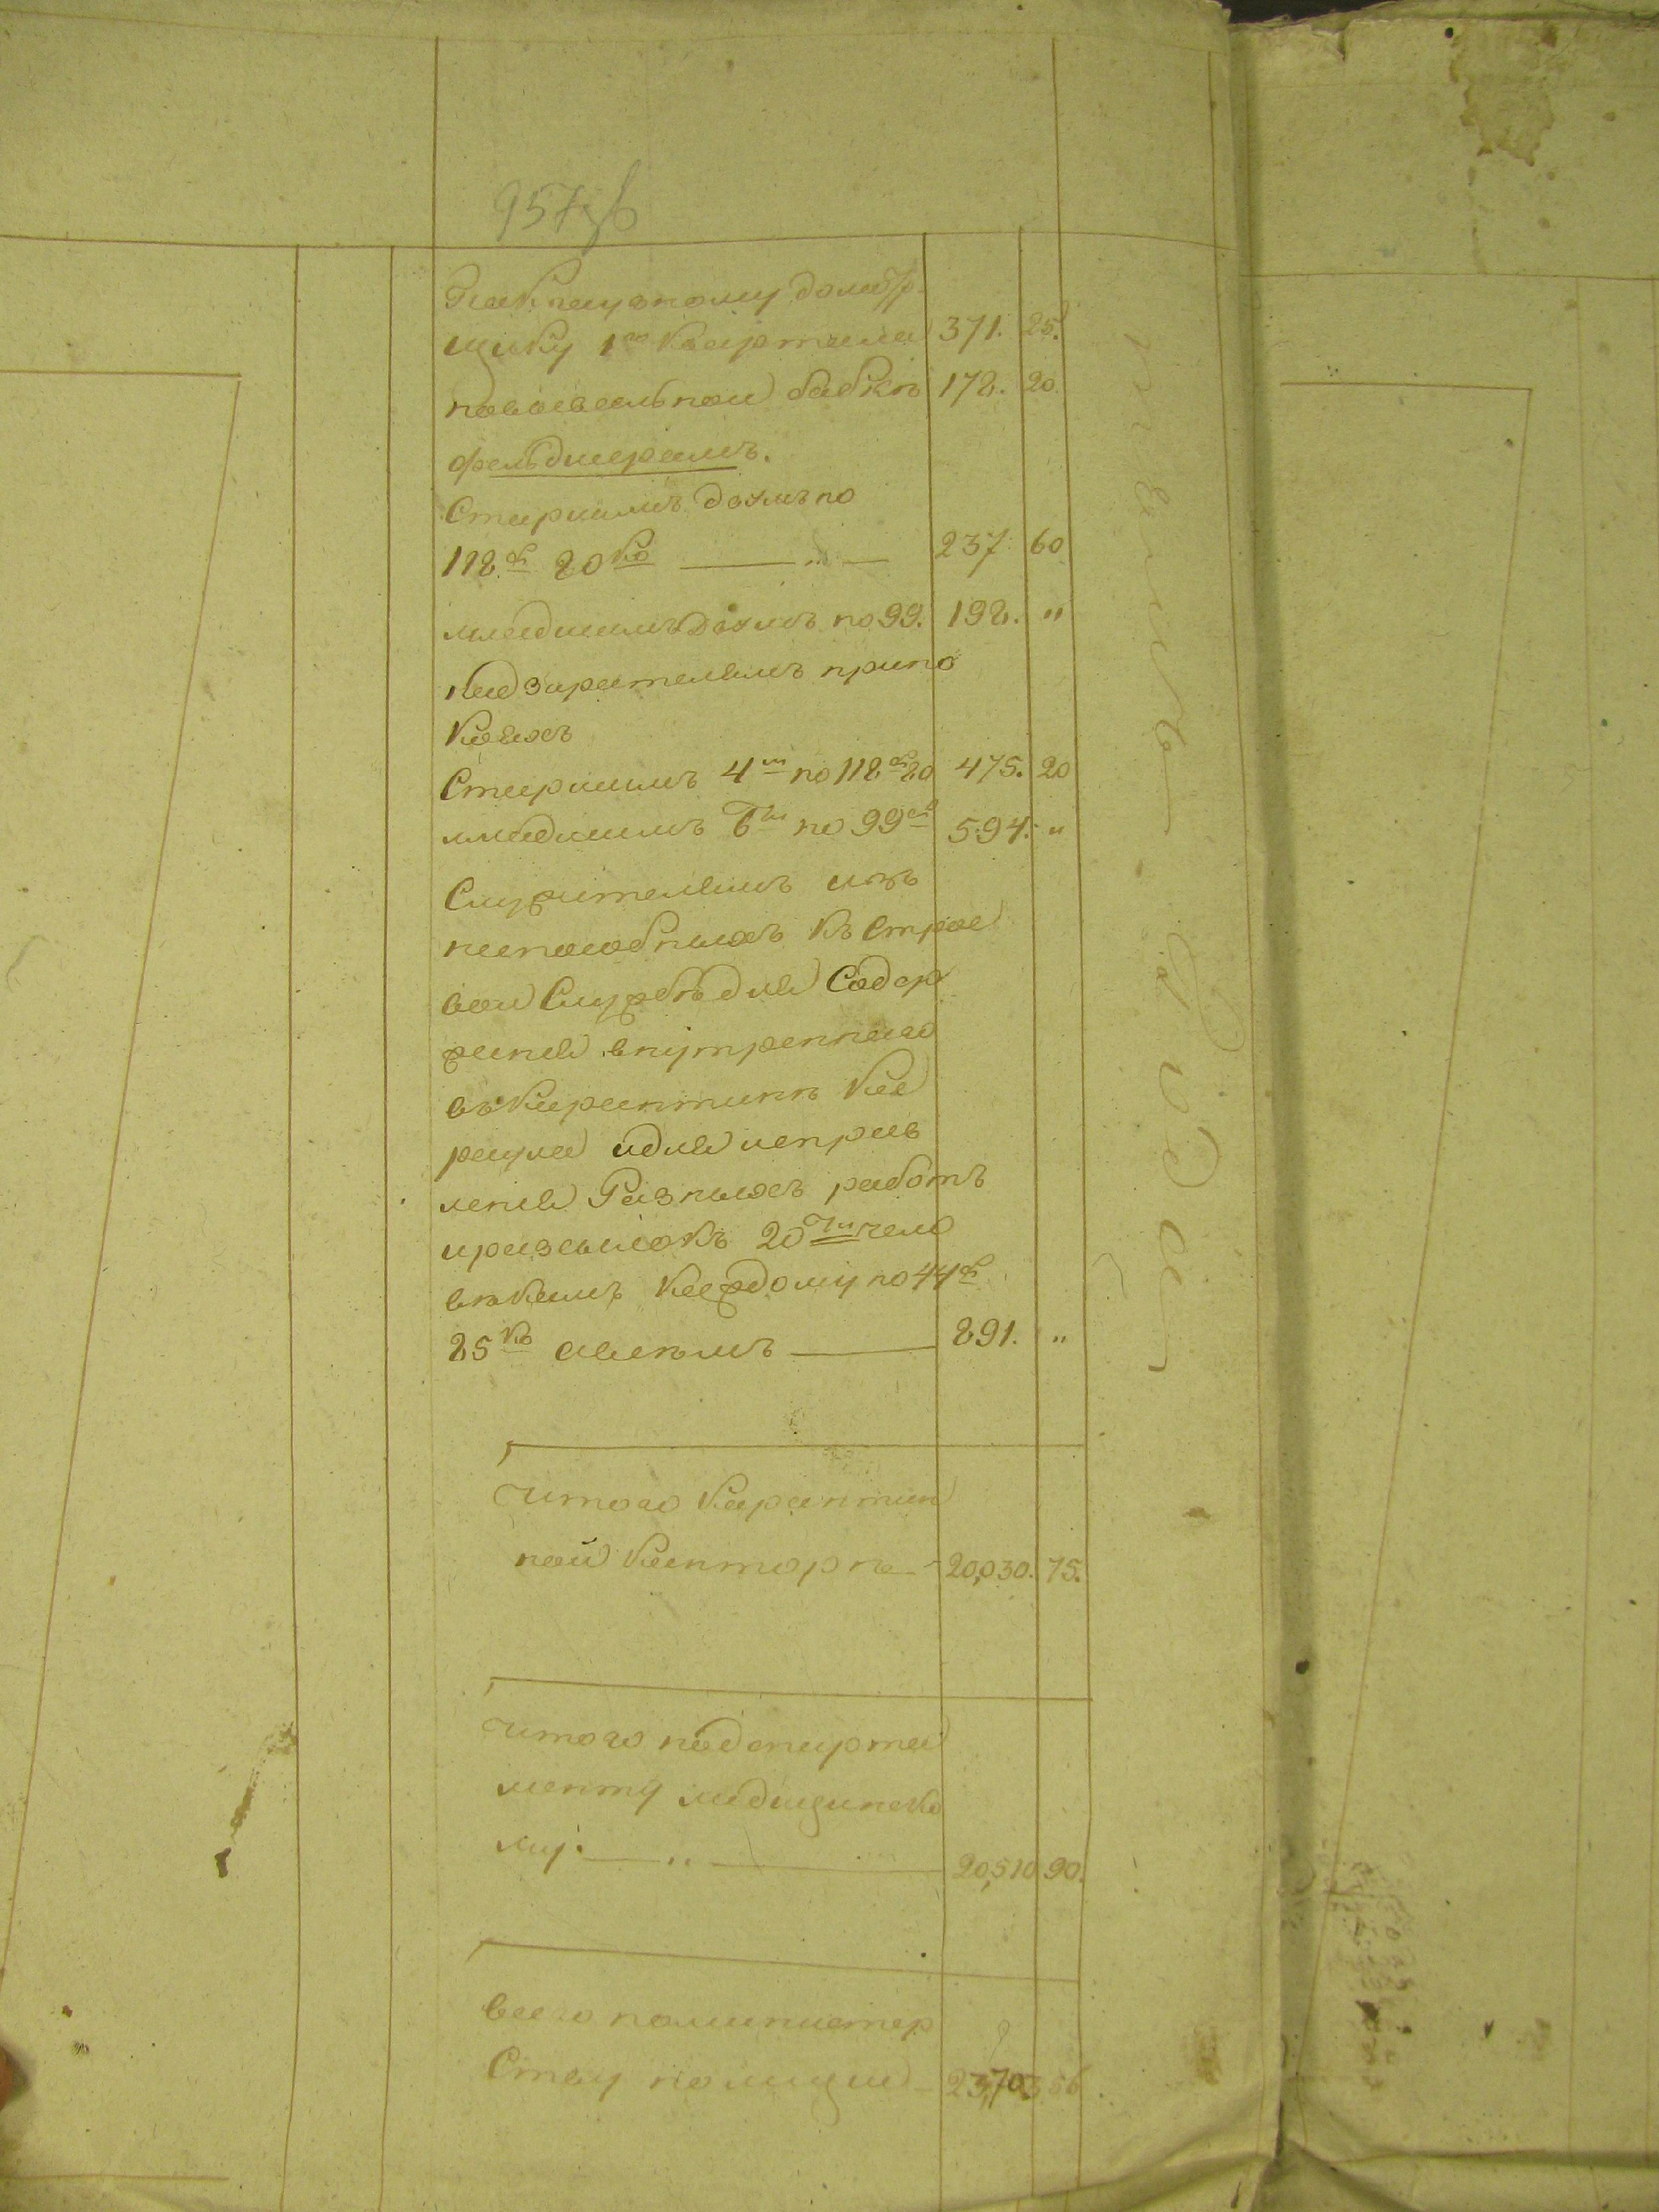 957 об
Пакгаузному
щику 1го Квартала 371. 25.
повивальной бабкѣ 178. 20.
фельдшерамъ.
Старшимъ двумъ по
118.р 80 ко — „ — 237 60
младшимъ двумъ по 99. 198. „
надзирателямъ при по
кояхъ
Старшимъ 4м по 118 р 80 475. 20
младшимъ 6ти по 99 ру 594. „
Служителямъ изъ
неспособныхъ къ строе
вой Службѣ для Содер
жения внутренняго
въ Карантинѣ Ка
раула и для исправ
ления Разныхъ работъ
и разсылокъ 20ти чело
вѣкамъ каждому по 44 р
25 ко — 891. „
Итого Карантин
ной Канторѣ — 20,030. 75.
Итого по департа
менту медицинско
му. — „ — 20,510 90.
Всего по министер
Ству полиции — 23,703 56